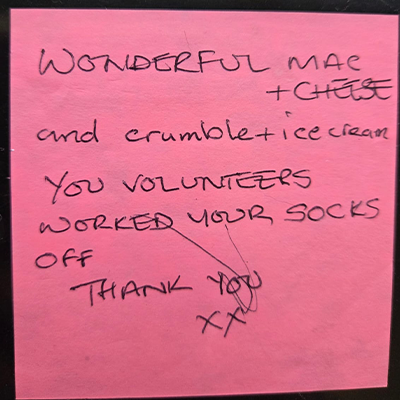 WONDERFUL MAC
+ CHEESE
and crumble + ice cream
YOU VOLUNTEERS
WORKED YOUR SOCKS
OFF
THANK YOU
XX